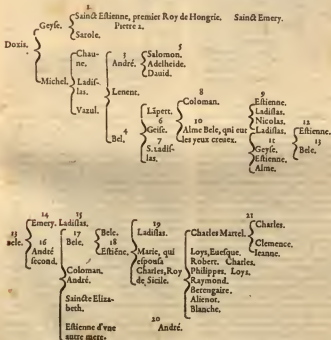 1.
Geyse. Sainct Estienne, premier Roy de Hongrie. Sainct Emery.
Pietre 2.
Sarole.
Doxis.
Michel.
Chaune.
Ladislas.
Vazul.
3
André.
Lenent.
4
Bel.
5
Salomon.
Adelheide.
Dauid.
Lāpert.
6
Geise.
7
S. Ladislas.
8
Coloman.
10
Alme Bele, qui eut
les yeux creuez.
9
Estienne.
Ladislas.
Nicolas.
Ladislas.
11
Geyse.
Estienne.
Alme.
12
Estienne.
13
Bele.
13
Bele.
14
Emery.
16
André
second.
15
Ladislas.
17
Bele.
Coloman.
André.
Saincte Elizabeth.
Estienne d'vne
autre mere.
Bele.
18
Estiēne.
19
Ladislas.
Marie, qui
espousa
Charles, Roy
de Sicile.
20
André.
Charles Martel.
Loys, Euesque.
Robert. Charles.
Philippes. Loys.
Raymond.
Berengaire.
Alienor.
Blanche.
21
Charles.
Clemence.
Ieanne.